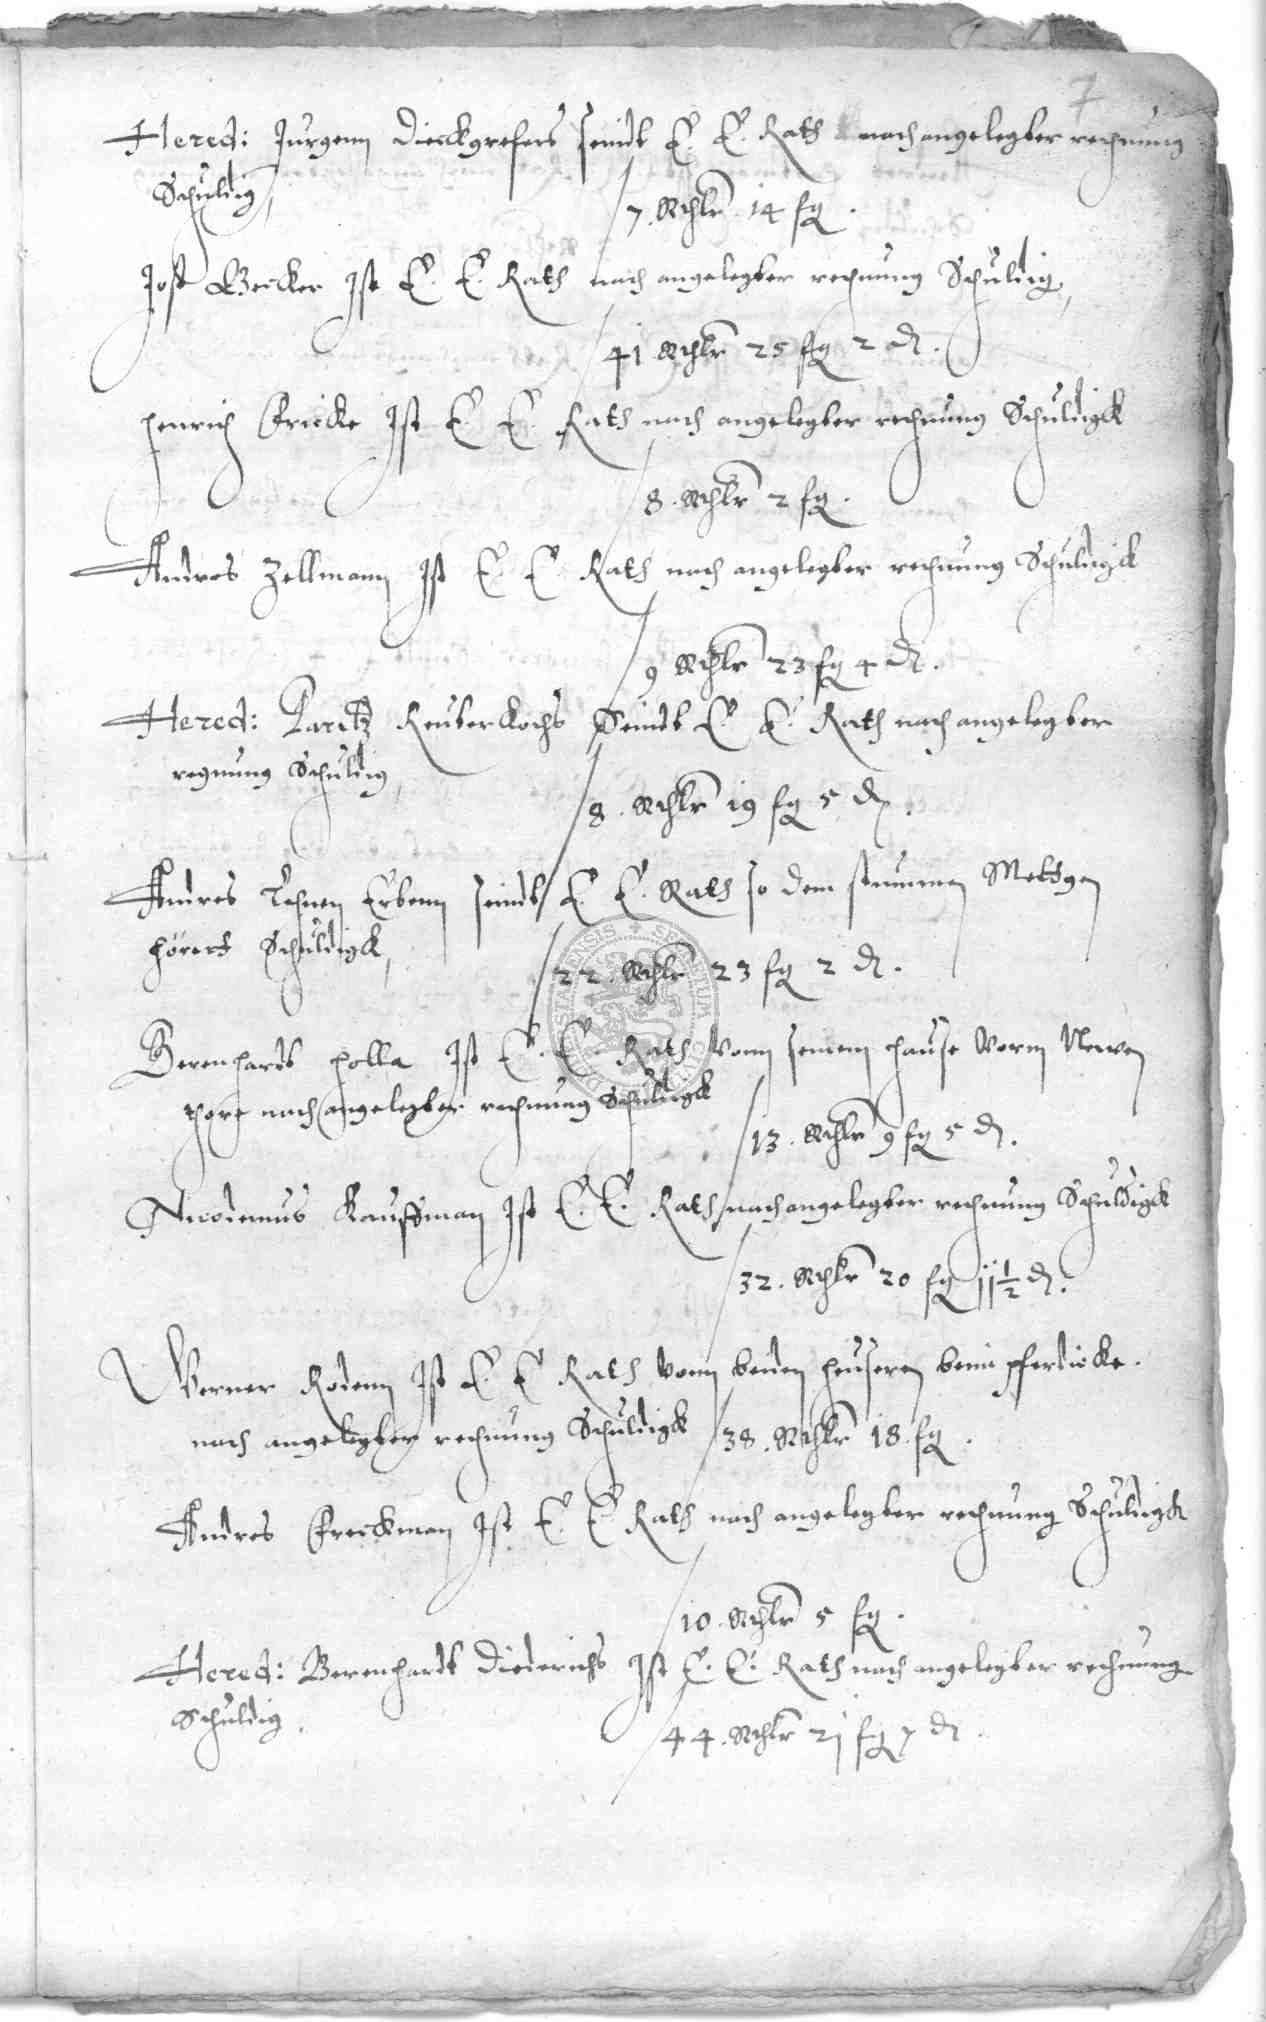 7
Hered: Jurgenn Dieckgrefers seindt E. E. Rath nach angelegter rechnung
Schuldig,
7. Rthlr 14 fg.
Jost Becker Ist E. E. Rath nach angelegter rechnung Schuldig,
41 Rthlr 25 fg 2 d.
Henrich Fricke Ist E. E. Rath nach angelegter rechnung Schuldigk
8. Rthlr 2 fg.
Andres Zellmann Ist E. E. Rath nach angelegter rechnung Schuldigk
9 Rthlr 23 fg 4 d.
Hered: Reuberkochs Seindt E. E. Rath nach angelegter
regnung Schuldig,
8. Rthlr 19 fg 5 d.
Andres Erbenn seindt E. E. Rath so dem stummen Metgen
hörett Schuldigk,
22. Rthlr 23 fg 2 d.
Berenhardt Holla Ist E. E. Rath vonn seinem Hause vorm Newen
thore nach angelegter rechnung Schuldigk
13. Rthlr 9 fg 5 d.
Nicodemus Kauffman Ist E. E. Rath nach angelegter rechnung Schuldigk
32. Rthlr 20 fg 11½ d.
Werner Rodenn Ist E. E. Rath vonn beiden heuseren beim pferdicke.
nach angelegter rechnung Schuldigk 38. Rthlr 18. fg.
Andres Freckman Ist E. E. Rath nach angelegter rechnung Schuldigk
10. Rthlr 5 fg.
Hered: Berenhardt Diederichs Ist E. E. Rath nach angelegter rechnung
Schuldig.
44. Rthlr 21 fg 7 d.